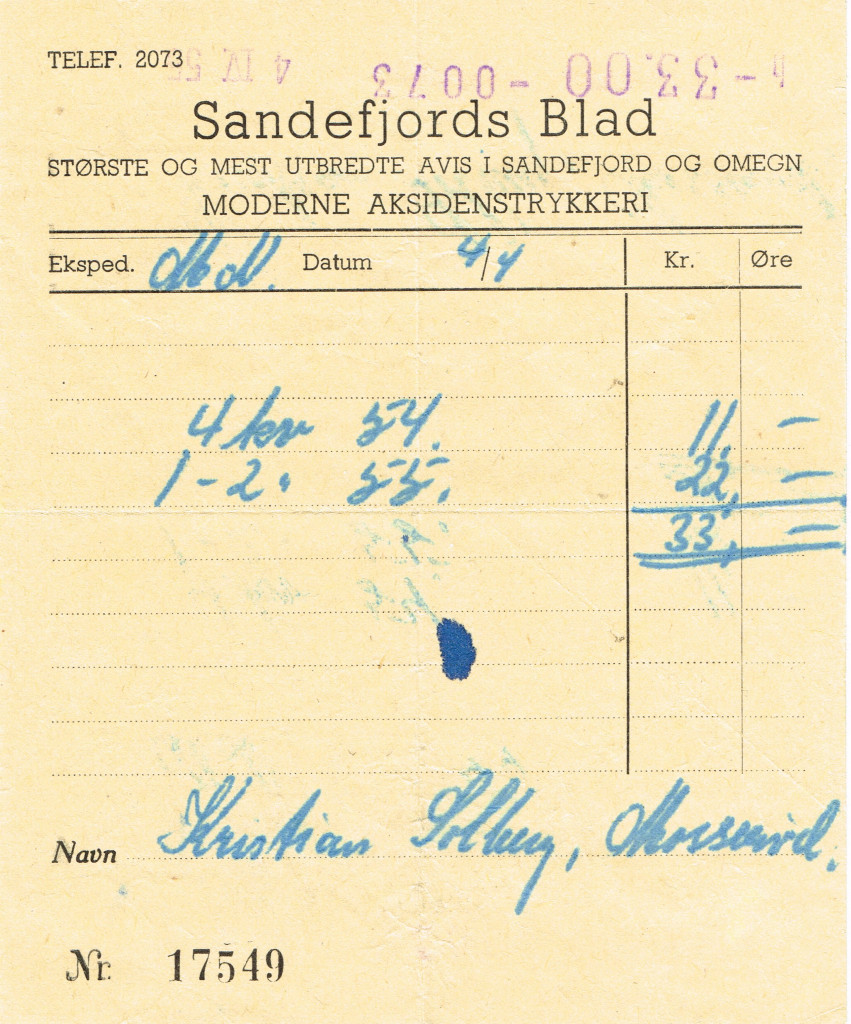 TELEF. 2073
4 IV 55 3 - 0073 - 33.00
Sandefjords Blad
STØRSTE OG MEST UTBREDTE AVIS I SANDEFJORD OG OMEGN
MODERNE AKSIDENSTRYKKERI
Eksped. Datum 4/4 Kr. Øre
4 kv 54. 11, —
1 - 2 " 55. 22, —
33, —
Navn Kristian Solberg,
Nr. 17549